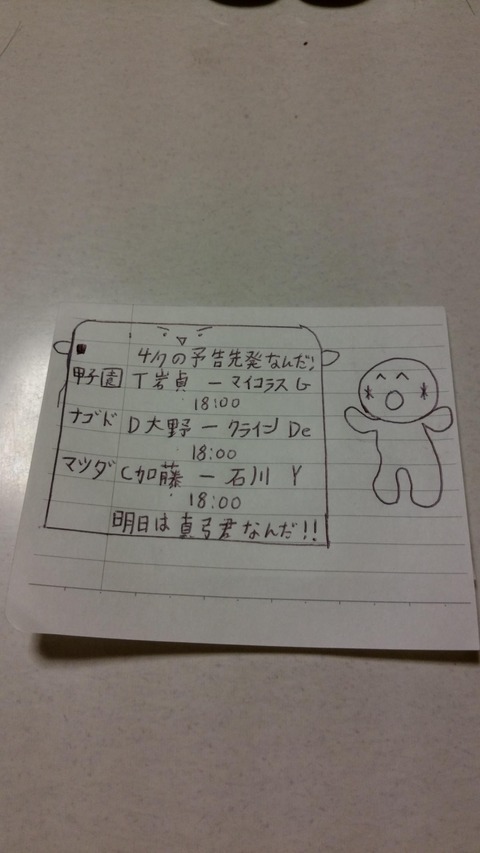 4/7の予告先発なんだ!
甲子園 T岩貞 ー マイコラス G
18:00
ナゴド D大野 ー クライン De
18:00
マツダ C加藤 ー 石川 Y
18:00
明日は真弓君なんだ!!